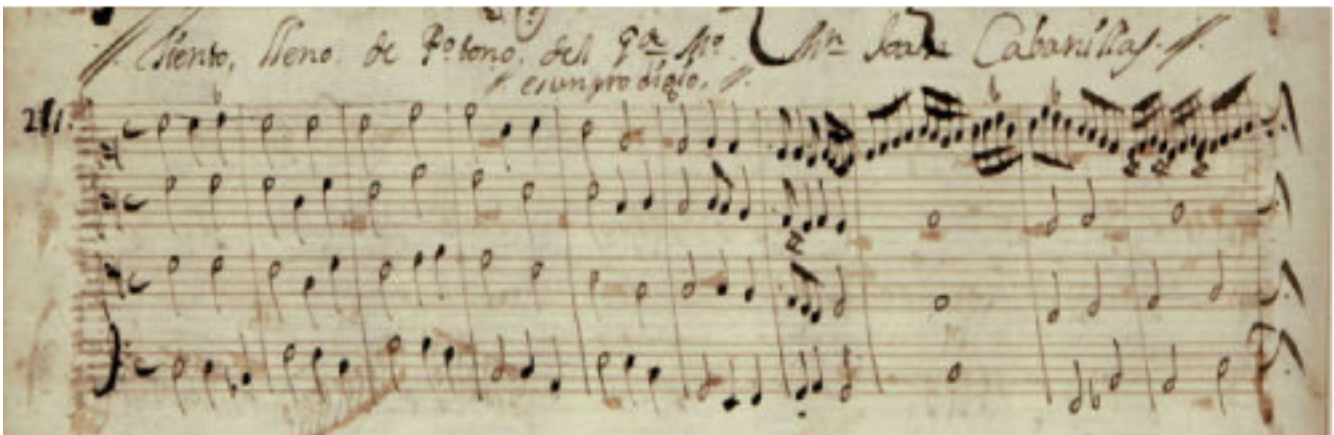 Tiento, lleno. de tono. del Gde Mo. Mn Joan Cabanillas.
es un prodigio.